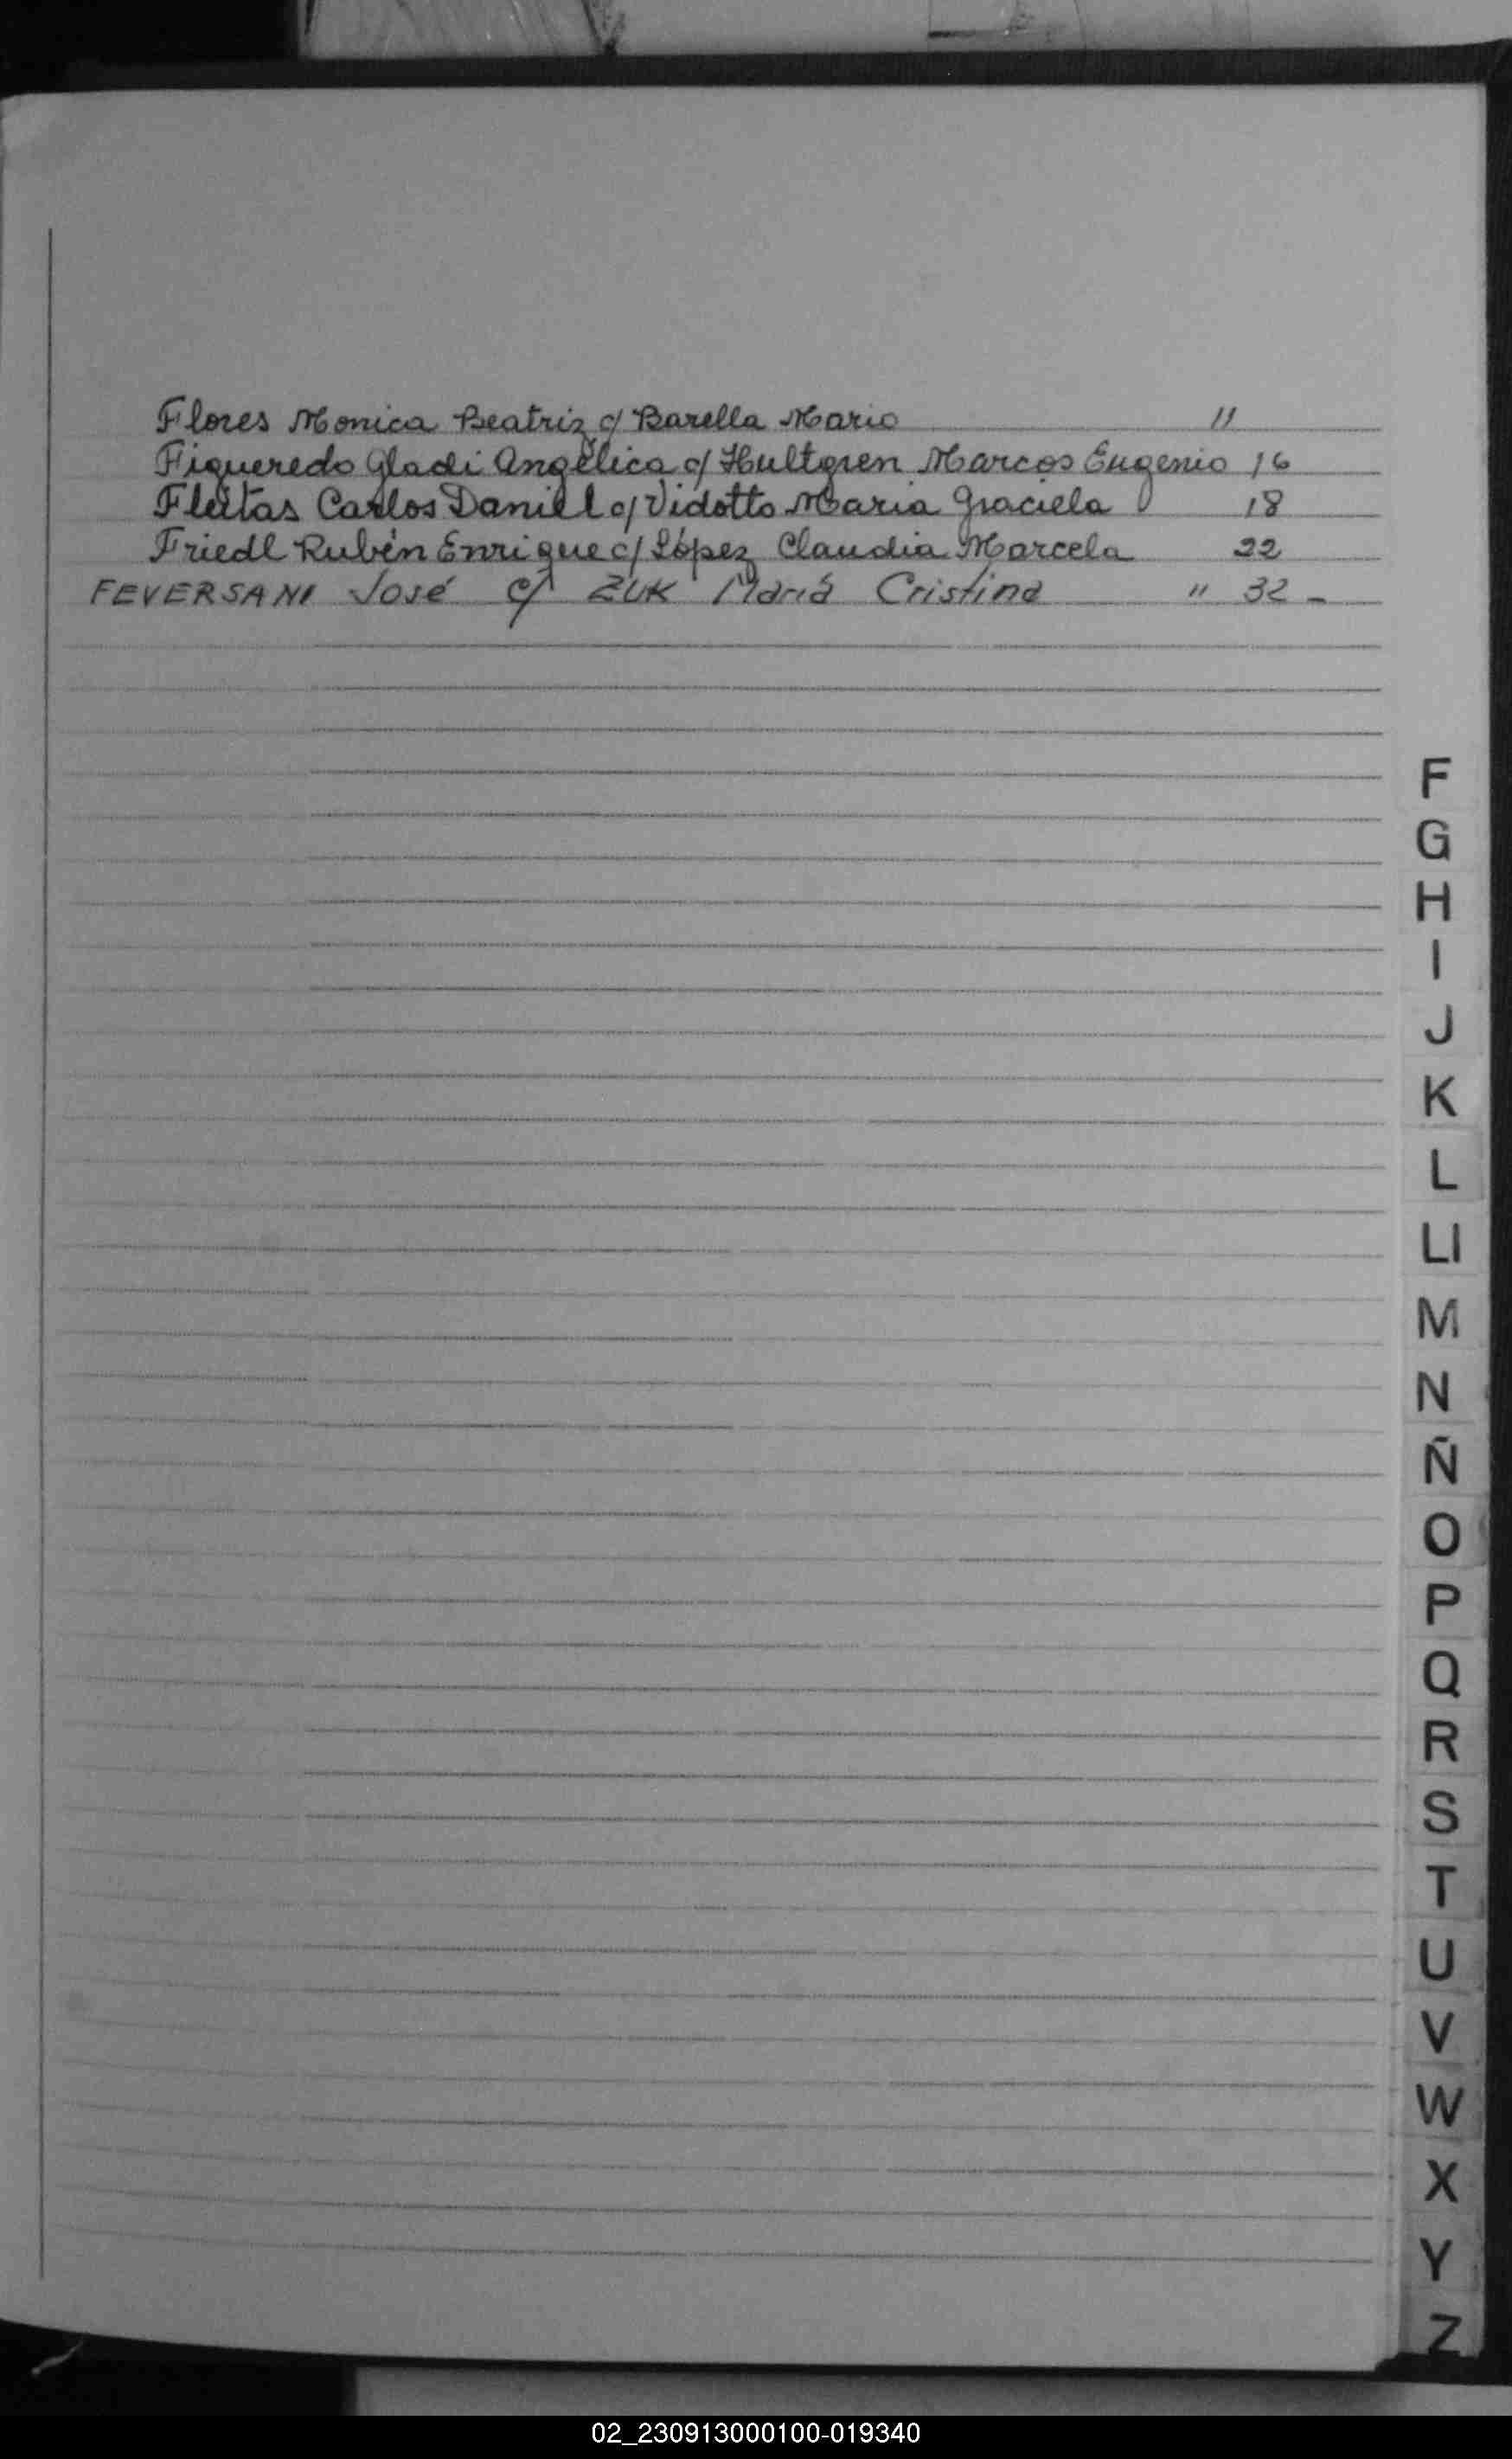 Flores Monica Beatriz c/ Barella Mario 11
Figueredo Gladi Angélica c/ Hultgren Marcos Eugenio 16
Fleitas Carlos Daniel c/ Vidotto Maria Graciela 18
Friedl Rubén Enrique c/ López Claudia Marcela 22
FEVERSANI José c/ ZUK María Cristina " 32 -
F
G
H
I
J
K
L
Ll
M
N
Ñ
O
P
Q
R
S
T
U
V
W
X
Y
Z
02_230913000100-019340